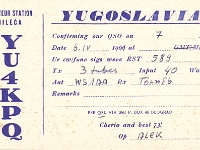 TEUR STATION
BILECA
YU4KPQ
YUGOSLAVIA
Confirming our QSO on 7
Date 6.IV 1969 at
Ur cw/fone sigs were RST 589
Tx 3 tubes Input 40 Wa
Ant WS1BA Rx
Remarks
Cherio and best 73'
Op ALEK